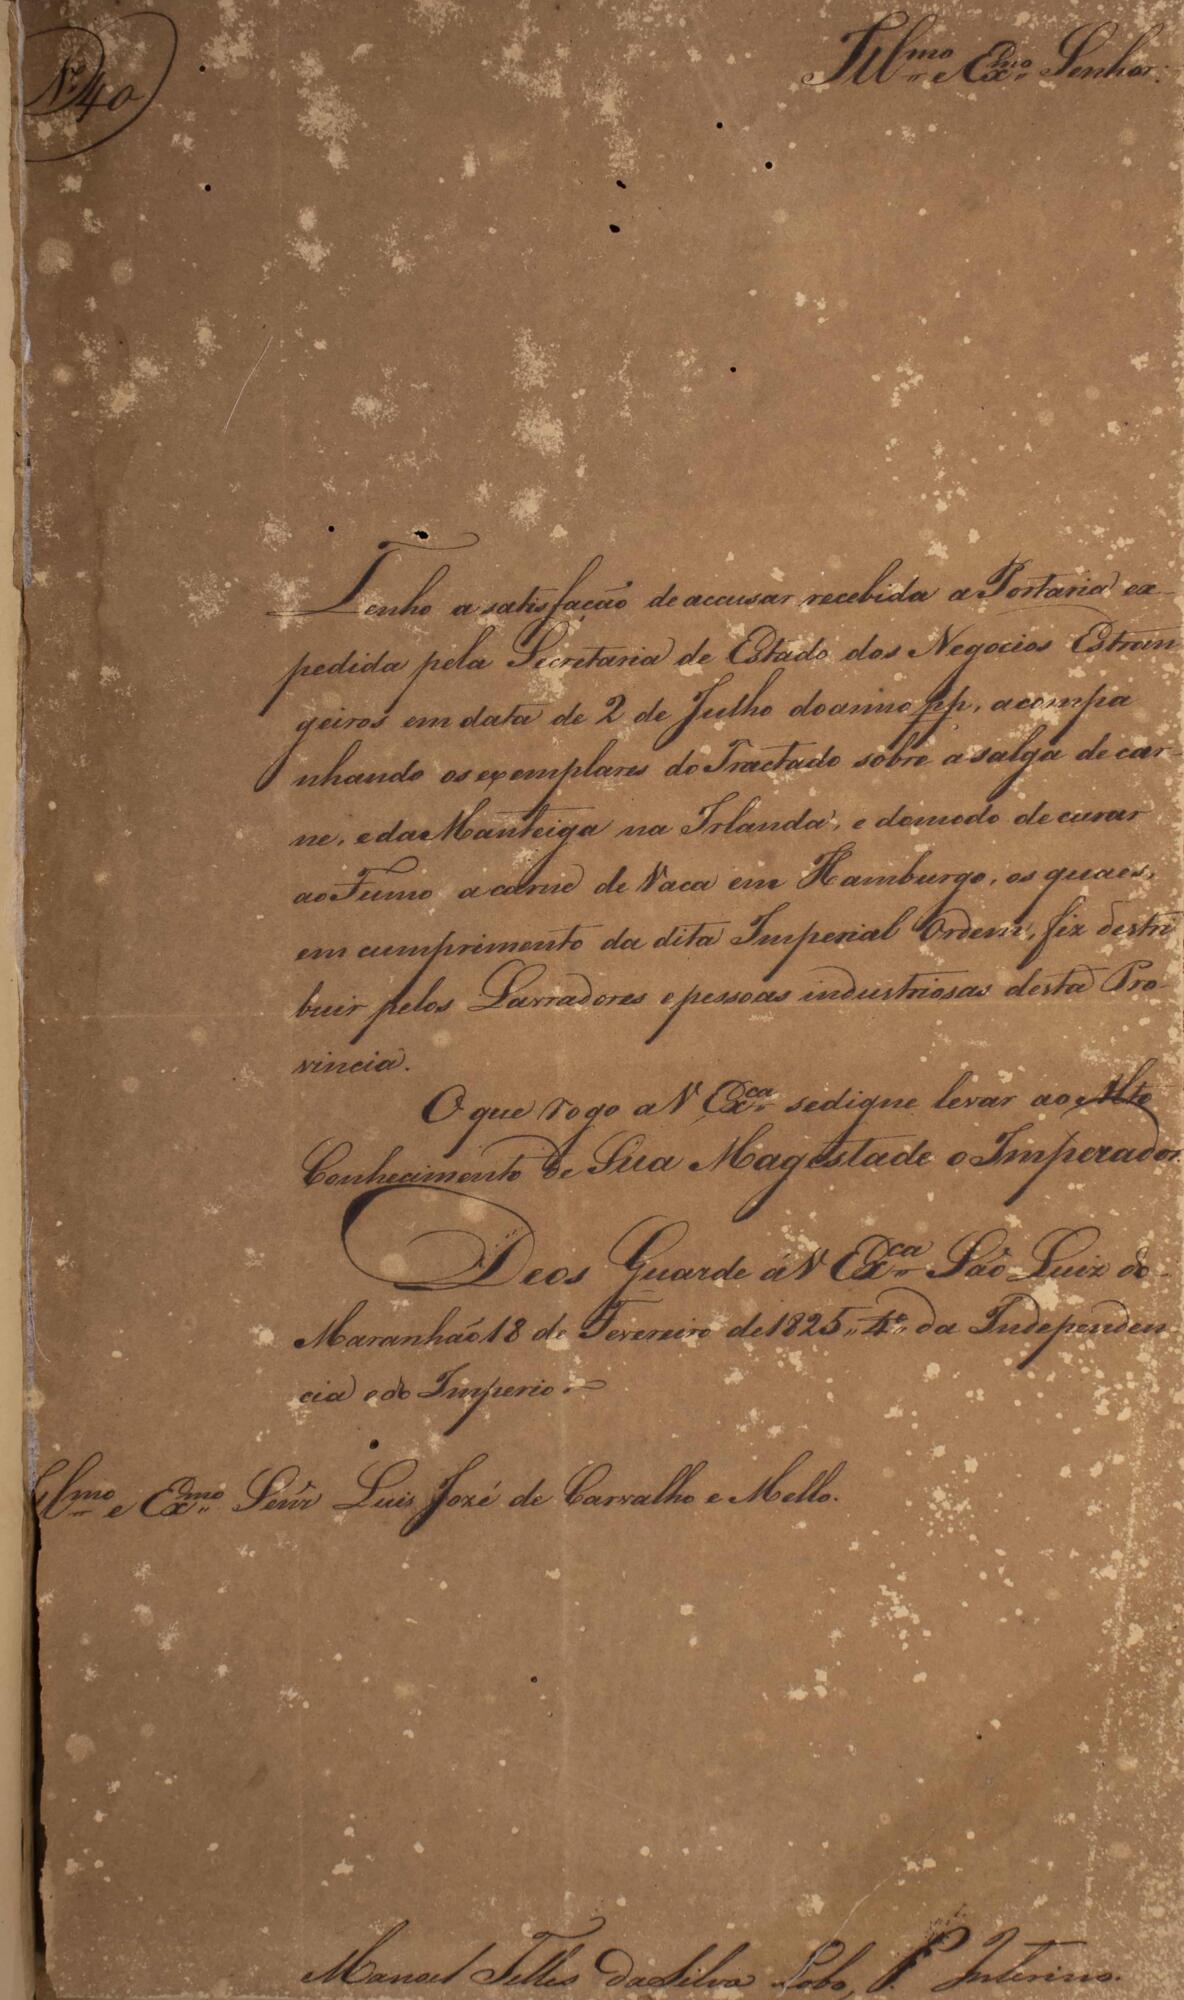 N.º 40
Ill.mo e Ex.mo Senhor.
Tenho a satisfação de accusar recebida a Portaria ex-
pedida pela Secretaria de Estado dos Negocios Estran
geiros em data de 2 de Julho do anno pp, acompa
nhando os exemplares do Tractado sobre a salga de car-
ne, e da Manteiga na Irlanda, e do modo de curar
ao Fumo a carne de Vaca em Hamburgo, os quaes,
em cumprimento da dita Imperial Ordem, fiz destri
buir pelos Lavradores e pessoas industriosas desta Pro-
vincia.
O que rogo a V Ex.ca se digne levar ao Alto
Conhecimento de Sua Magestade o Imperador.
Deos Guarde á V Ex.ca São Luiz do
Maranhão 18 de Fevereiro de 1825,, 4.º,, da Independen
cia e do Imperio.
Ill.mo e Ex.mo Senr Luis José de Carvalho e Mello.
Manoel Telles da Silva Lobo, P. Interino.